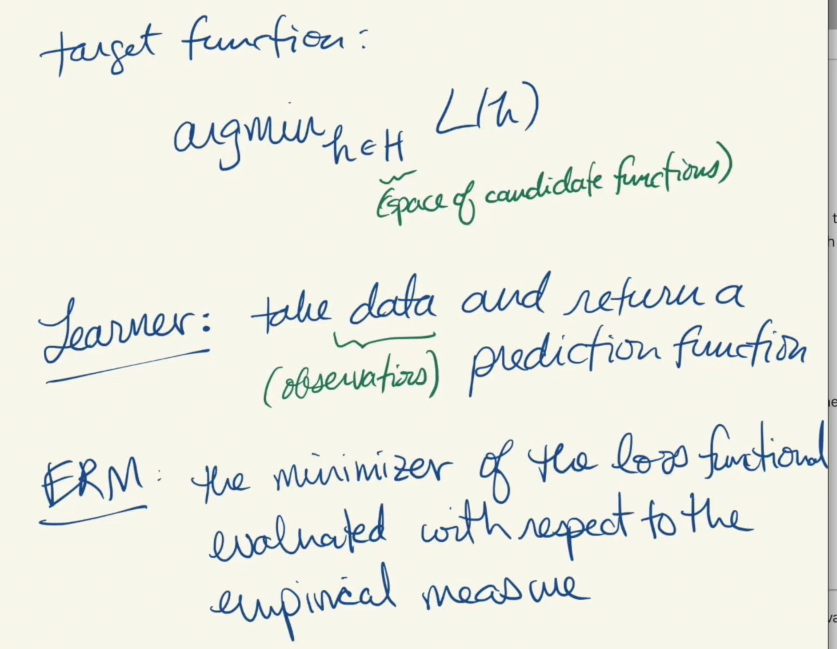 target function:
argmin h∈H L(h)
(space of candidate functions)
Learner: take data and return a
(observations) prediction function
ERM: the minimizer of the loss functional
evaluated with respect to the
empirical measure